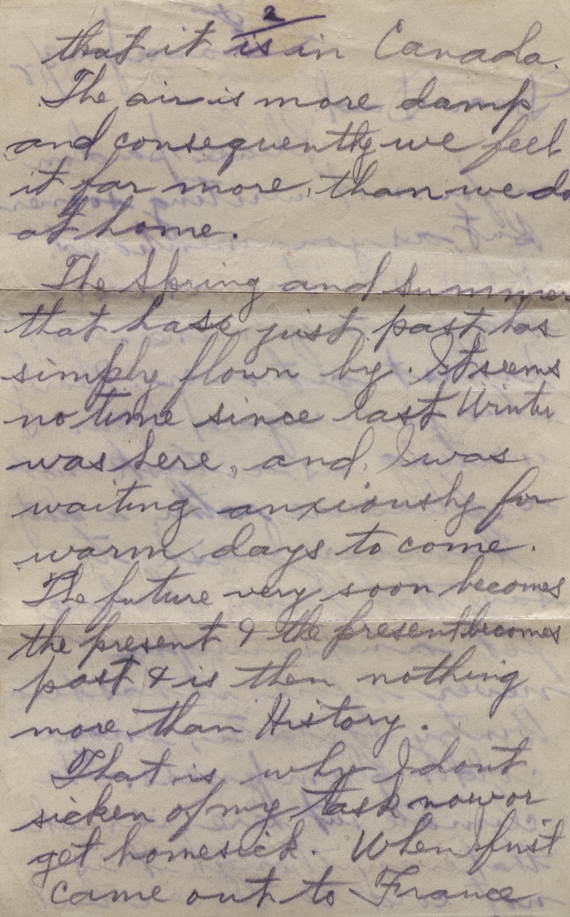 2
that it is in Canada.
The air is more damp
and consequently we feel
it far more, than we do
at home.
The Spring and Summer
that hass just past has
simply flown by. It seems
no time since last Winter
was here, and, I was
waiting anxiously for
warm days to come.
The future very soon becomes
the present & the present becomes
past & is then nothing
more than History.
That is why I dont
sicken of my task now or
get homesick. When first
came out to France